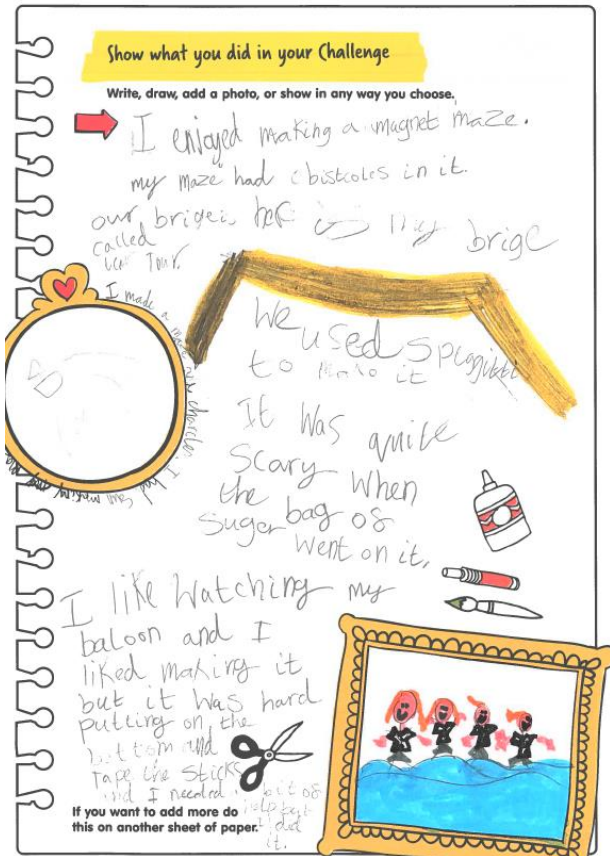 Show what you did in your Challenge
Write, draw, add a photo, or show in any way you choose.
I enjoyed making a magnet maze.
my maze had obistcoles in it.
our brige is
called
my brige
I made a
We used spuggitti
to make it
It was quite
scary when
the bag of
suger
went on it,
I like watching my
baloon and I
liked making it
but it was hard
putting on the
bottom and
tape the sticks
and I needed a bit of
help but
I did
it.
If you want to add more do
this on another sheet of paper.